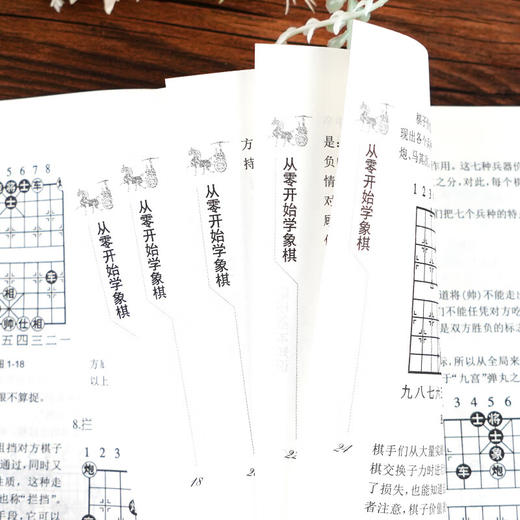 5 6 7 8
将 士 车
士
车
相
帅 仕 相
五 四 三 二 一
图 1-18
限不算捉。
8.拦
阻挡对方棋子
通过，同时又
性质，这种走
也称“拦挡”。
手段，它可以
1 2 3
炮
从零开始学象棋
方
以上
18
从零开始学象棋
从零开始学象棋
方
持
从零开始学象棋
是
负
情
对
22
从零开始学象棋
棋子
现出各个
炮、马其次
1 2 3
九 八 七 六
棋手们从大量实
棋交换子力时进
了损失，也能知道
者注意，棋子价值
24
作用。这七种兵器价
之分，对此，每个棋
们把七个兵种的特点
道将（帅）不能走出
们不能任凭对方吃
是双方胜负的标志
标，所以从全局来
于“九宫”弹丸之
3 4 5 6 7
将
士
象
车
士
炮